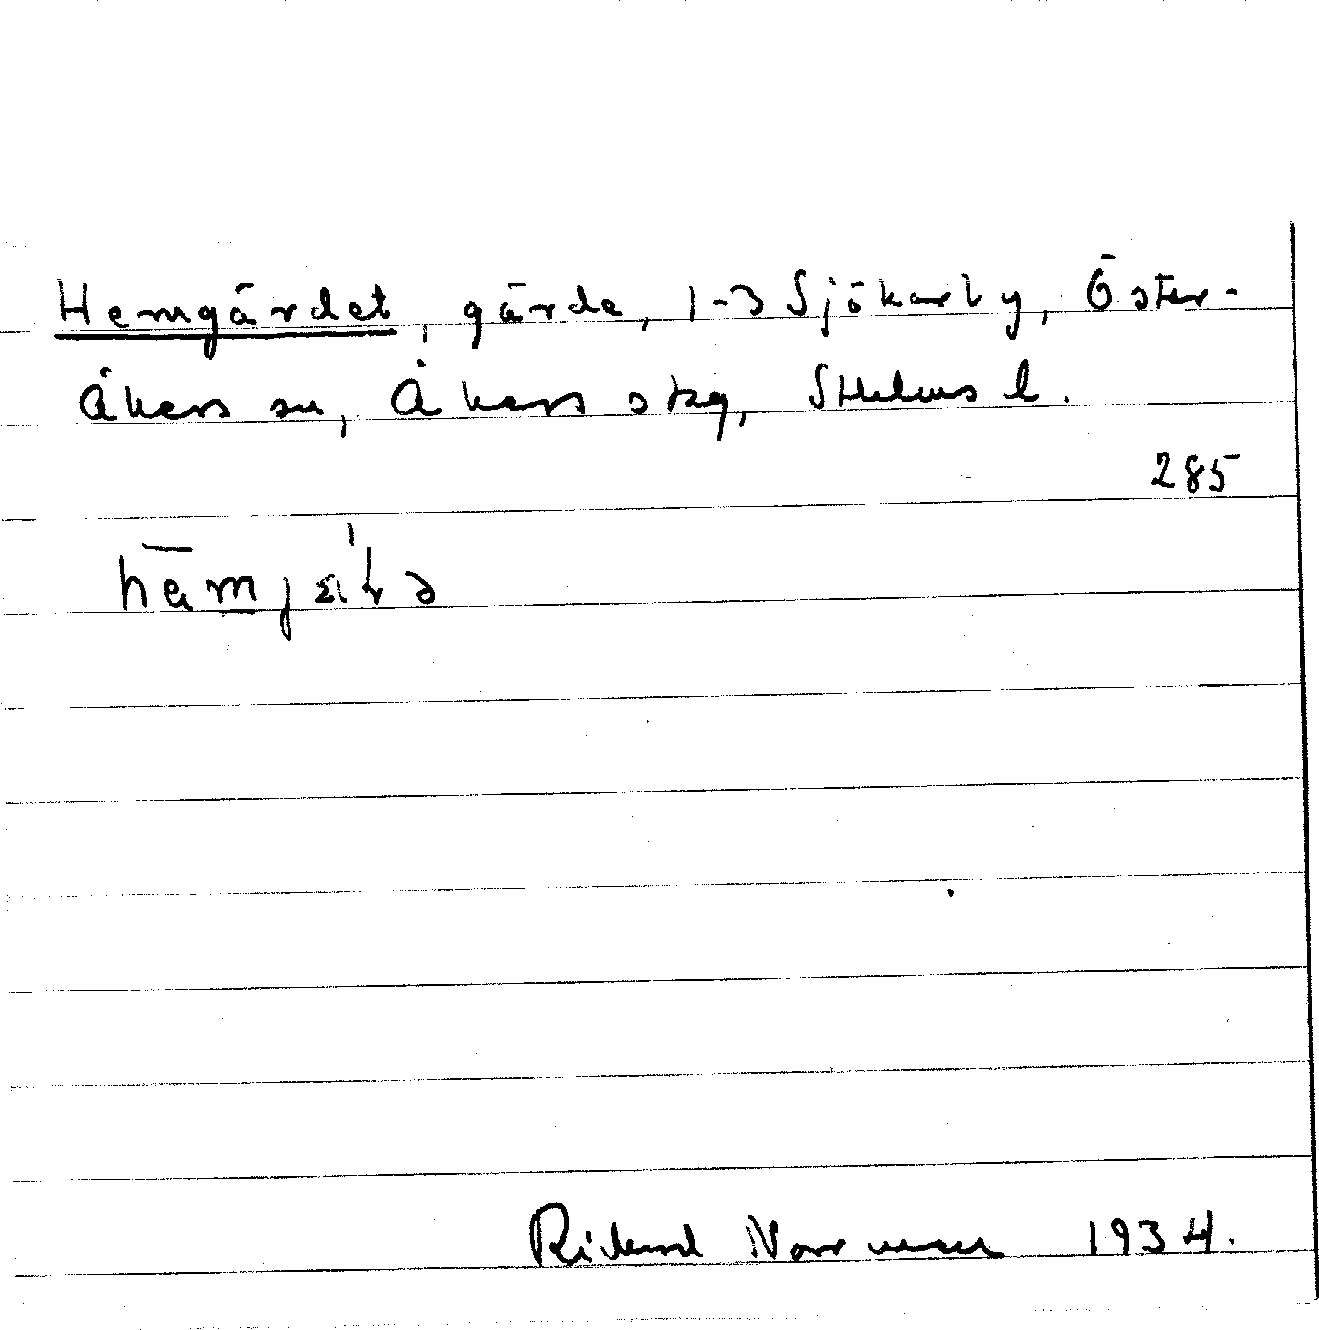 Hemgärdet, gärde, 1-3 Sjökarby, Öster-
Åkers sn, Åkers skg, Sthlms l.
285
Rikard Norrman 1934.